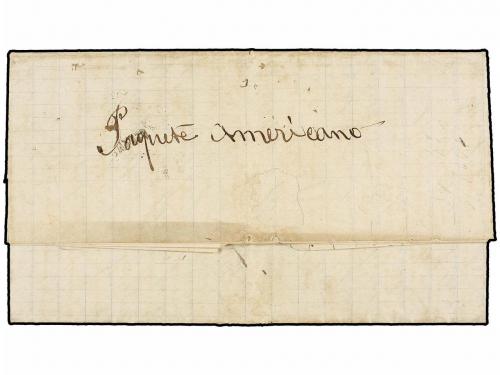 Paquete Americano